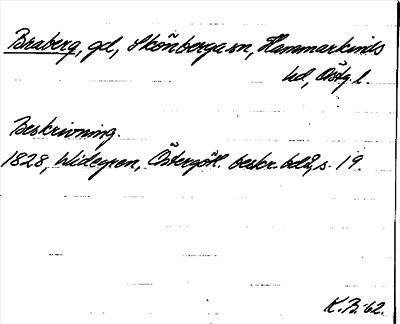 Braberg, gd, Skönberga sn, Hammarkinds
hd, Östg. l.
Beskrivning.
1828, Widegren, Östergötl. beskr. bd 2, s. 19.
K.B. 62.